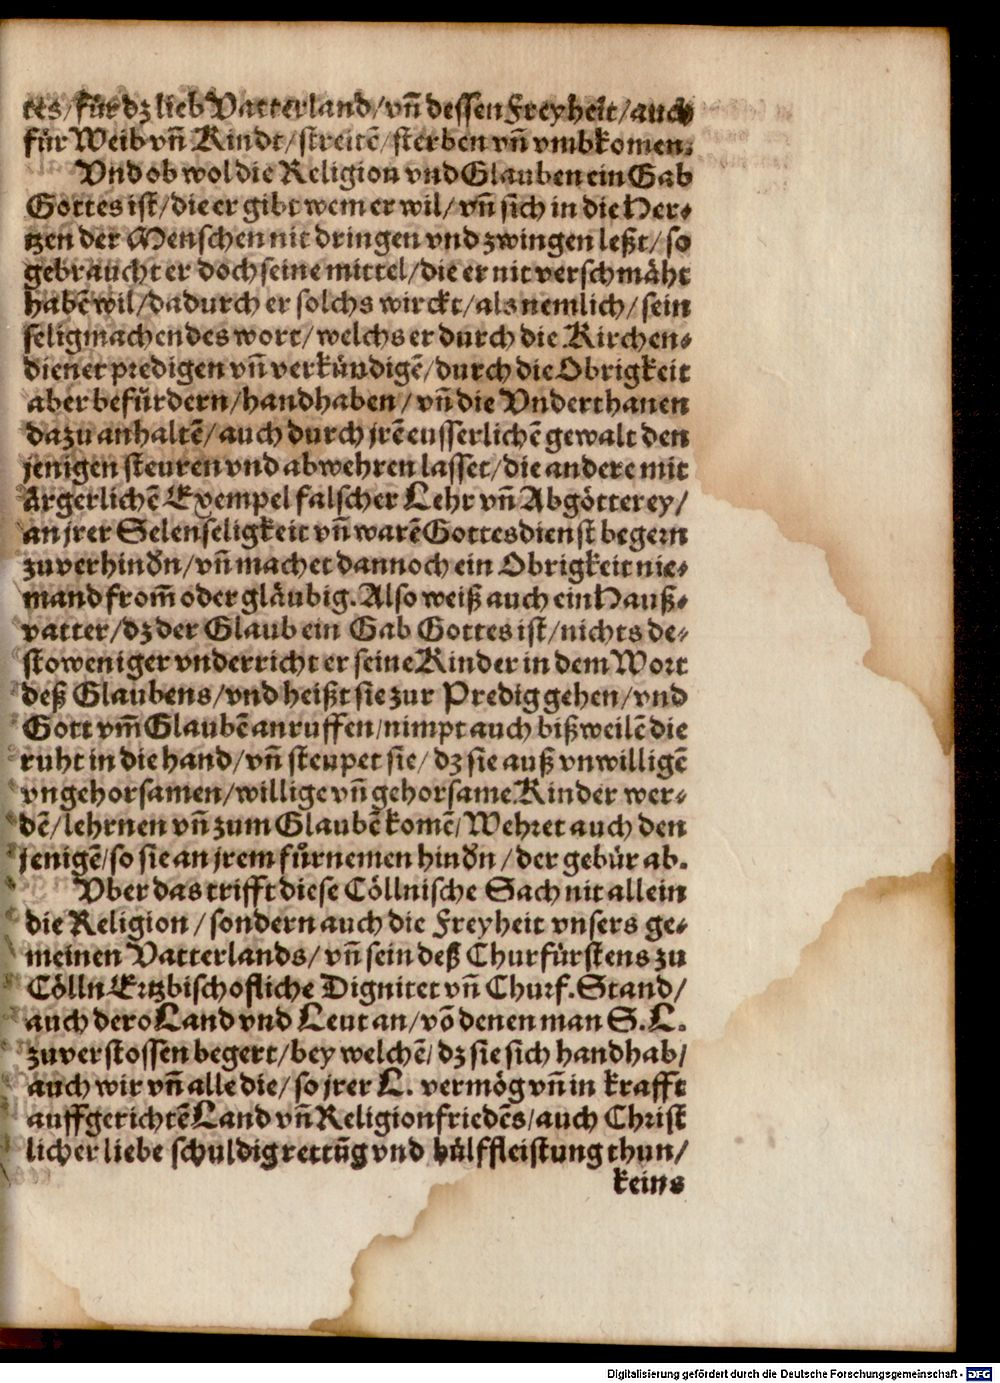 tes/für dz lieb Vatterland/vñ dessen Freyheit/auch
für Weib vñ Kindt/streitē/sterben vñ vmbkomen.
Vnd ob wol die Religion vnd Glauben ein Gab
Gottes ist/die er gibt wem er wil/vñ sich in die Her-
tzen der Menschen nit dringen vnd zwingen leßt/so
gebraucht er doch seine mittel/die er nit verschmäht
habē wil/dadurch er solchs wirckt/als nemlich/sein
seligmachendes wort/welchs er durch die Kirchen-
diener predigen vñ verkündigē/durch die Obrigkeit
aber befürdern/handhaben/vñ die Vnderthanen
dazu anhaltē/auch durch jrē eusserlichē gewalt den
jenigen steuren vnd abwehren lasset/die andere mit
ärgerlichē Exempel falscher Lehr vñ Abgötterey/
an jrer Selenseligkeit vñ warē Gottesdienst begern
zuverhindn/vñ machet dannoch ein Obrigkeit nie-
mand from̃ oder gläubig. Also weiß auch ein Hauß-
vatter/dz der Glaub ein Gab Gottes ist/nichts de-
stoweniger vnderricht er seine Kinder in dem Wort
deß Glaubens/vnd heißt sie zur Predig gehen/vnd
Gott vm̃ Glaubē anruffen/nimpt auch bißweilē die
ruht in die hand/vñ steupet sie/dz sie auß vnwilligē
vngehorsamen/willige vñ gehorsame Kinder wer-
dē/lehrnen vñ zum Glaubē komē/Wehret auch den
jenigē/so sie an jrem fůrnemen hindn/der gebür ab.
Vber das trifft diese Cöllnische Sach nit allein
die Religion/sondern auch die Freyheit vnsers ge-
meinen Vatterlands/vñ sein deß Churfürstens zu
Cölln Ertzbischofliche Dignitet vñ Churf. Stand/
auch dero Land vnd Leut an/vō denen man S. L.
zuverstossen begert/bey welchē/dz sie sich handhab/
auch wir vñ alle die/so jrer L. vermög vñ in krafft
auffgerichtē Land vñ Religionfriedēs/auch Christ
licher liebe schuldig rettūg vnd hülffleistung thun/
keins
Digitalisierung gefördert durch die Deutsche Forschungsgemeinschaft - DFG